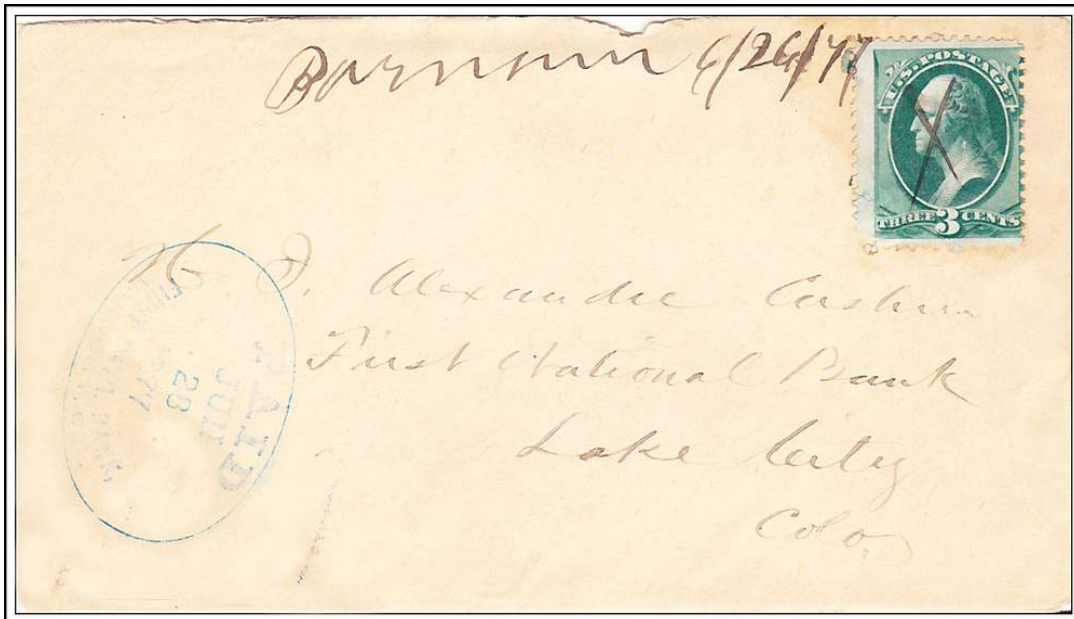 Barnum 6/26/77
U.S. POSTAGE
THREE 3 CENTS
H. A. Alexander Cashier
First National Bank
Lake City
Colo
PAID
JUN
28
77
FIRST